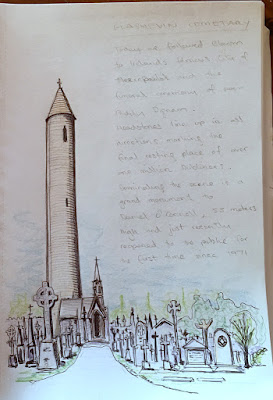 GLASNEVIN CEMETARY
Today we followed Bloom
to Irelands
and the
funeral
Headstones line up in all
directions marking the
final resting place of over
one million Dubliners.
Dominating the scene is a
grand monument to
Daniel O'Connell, 55 metres
high and just recently
reopened to the public for
the first time since 1971